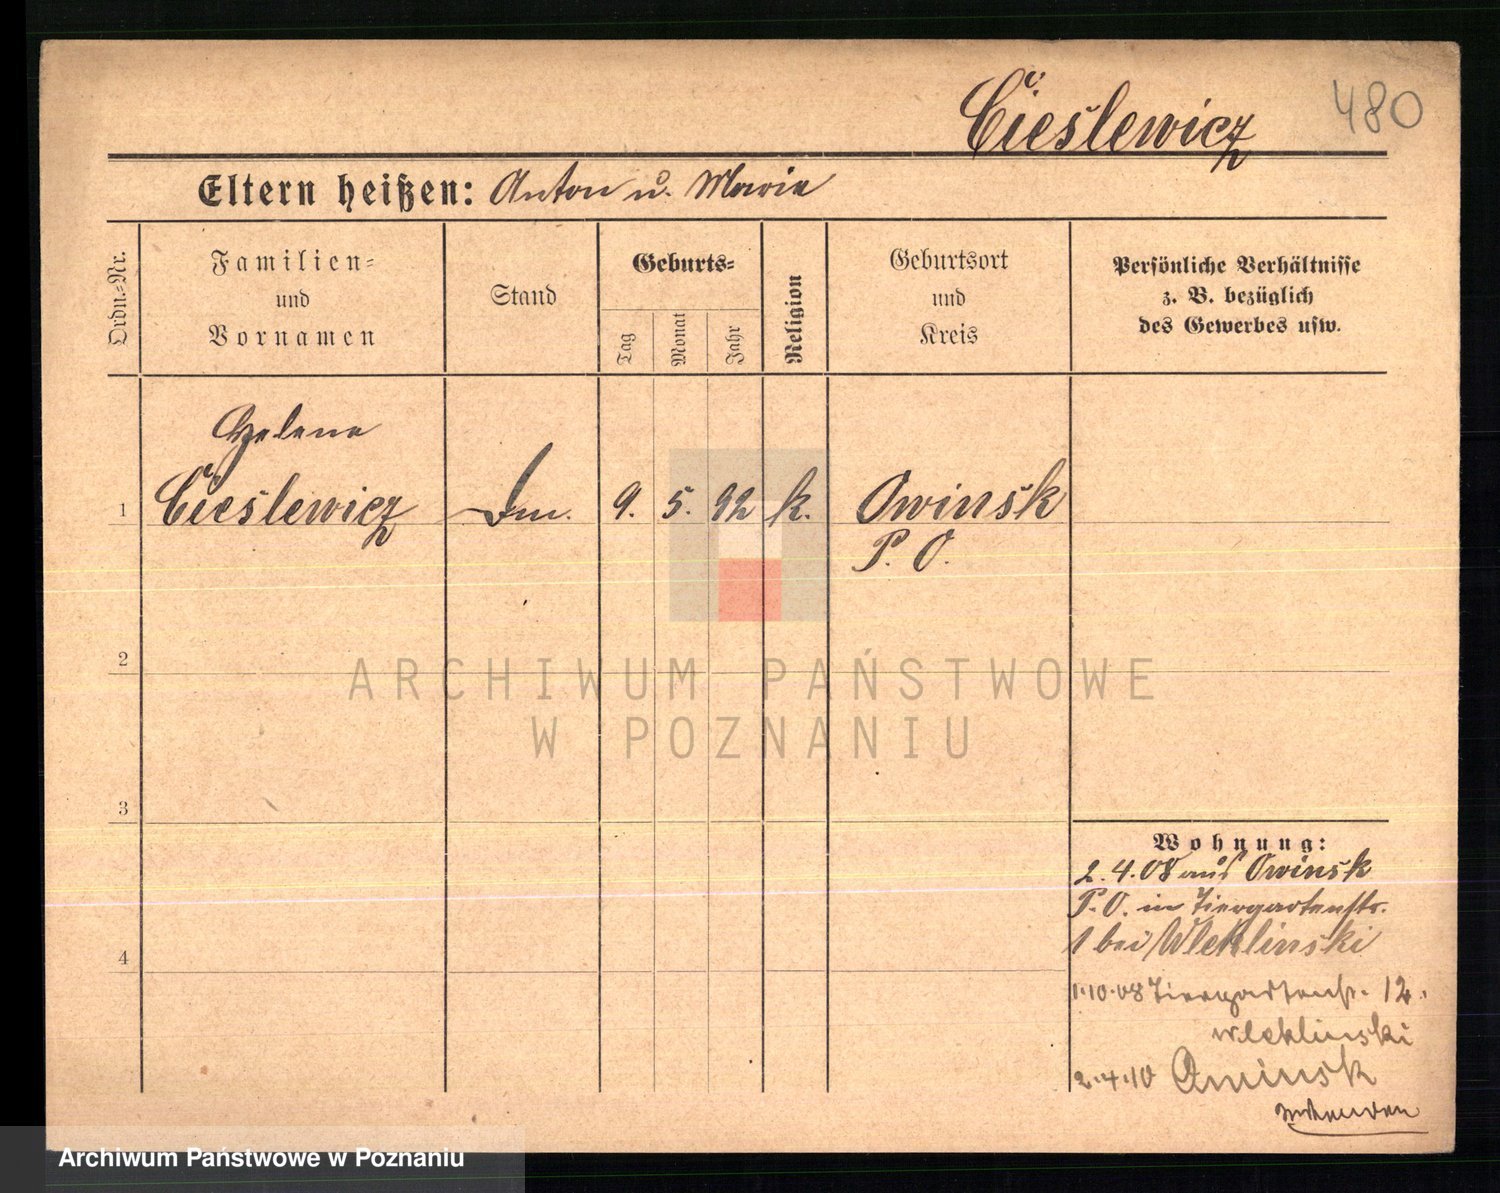 Cieślewicz 480
Eltern heißen: Anton u. Maria
Ordn.-Nr.
Familien-
und
Vornamen
Stand
Geburts-
Tag
Monat
Jahr
Religion
Geburtsort
und
Kreis
Persönliche Verhältnisse
z. B. bezüglich
des Gewerbes usw.
Helene
1 Cieślewicz 9. 5. 92 k. Owinsk
P. O.
2
3
4
Wohnung:
2.4.08 aus Owinsk
P. O. in Tiergartenstr.
1 bei Wleklinski
1.10.08 Tiergartenstr. 12.
Wleklinski
2.4.10 Owinsk
ARCHIWUM PAŃSTWOWE
W POZNANIU
Archiwum Państwowe w Poznaniu